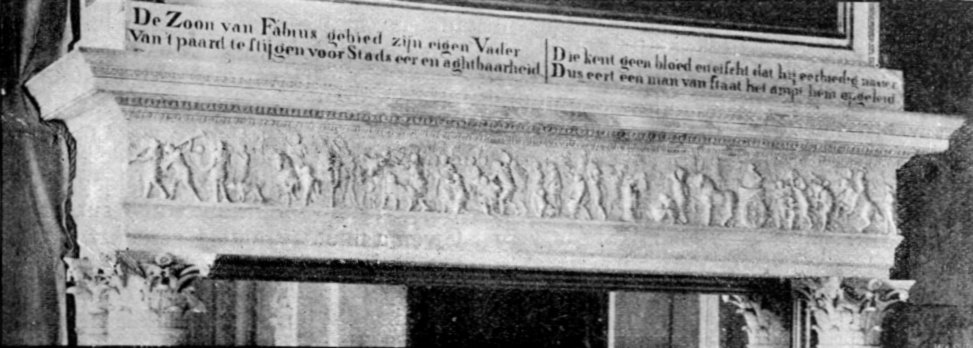 De Zoon van Fabius gebied zijn eigen Vader
Van 't paard te stijgen voor Stads eer en aghtbaarheid
Die kent geen bloed en eischt dat hij eerbiedig nader
Dus eert een man van staat het ampt hem opgeleid